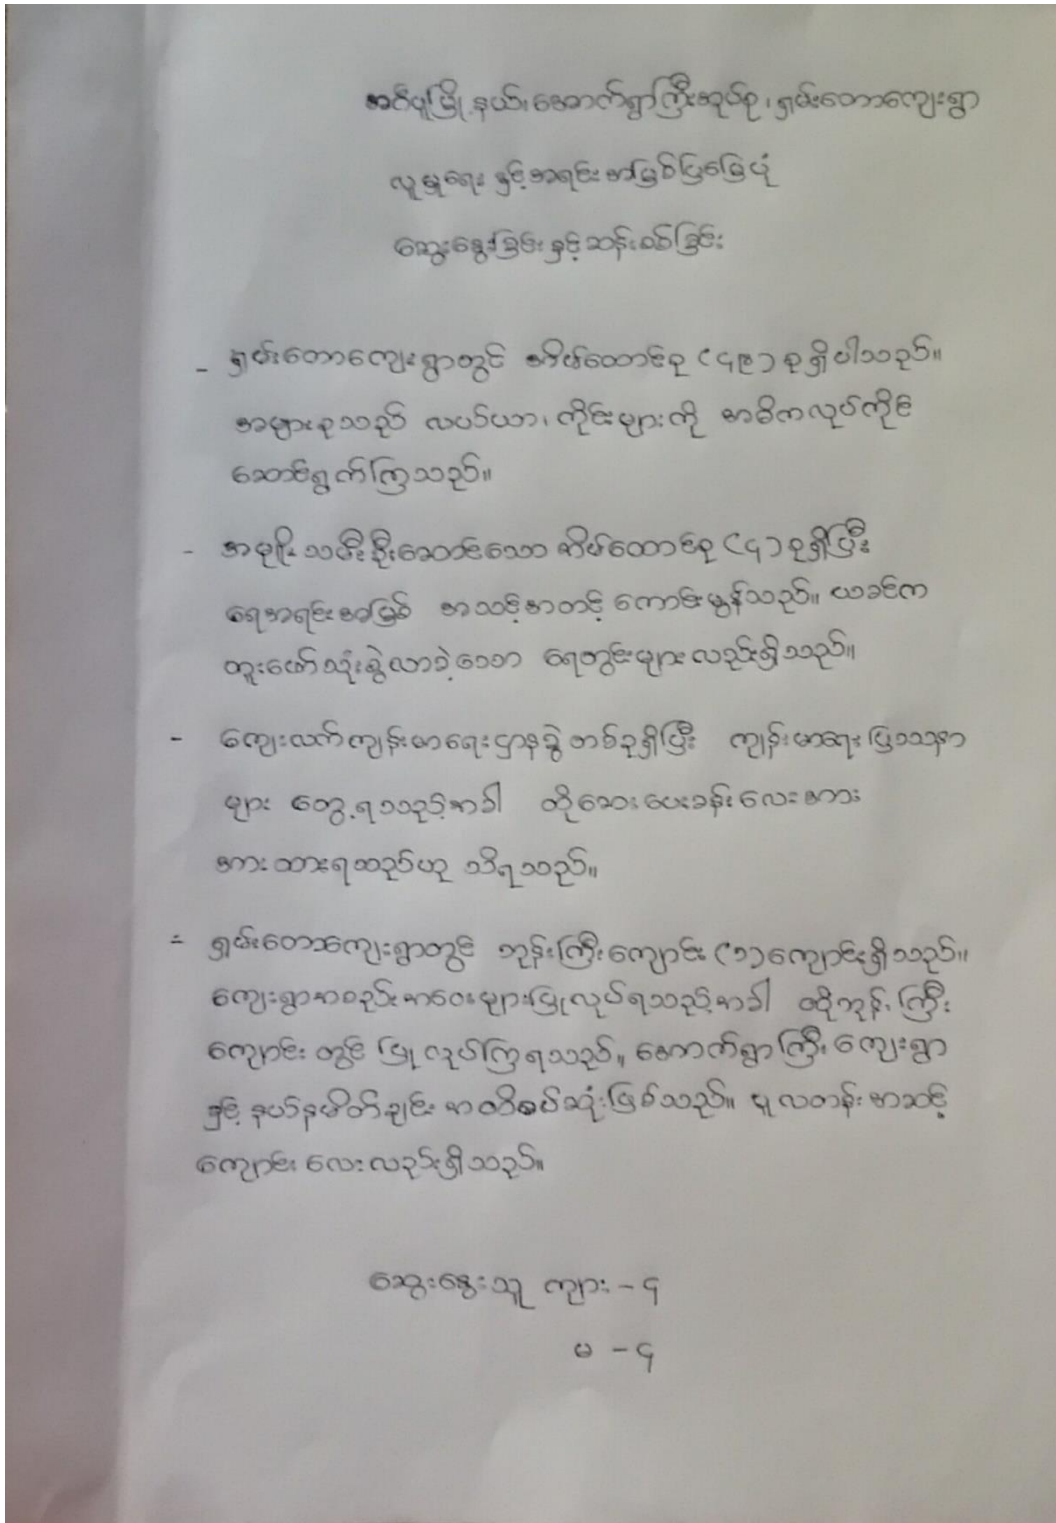 အင်္ဂပူမြို့နယ်၊ အောက်ရွာကြီးအုပ်စု၊ ရှမ်းတောကျေးရွာ
လူမှုရေး နှင့်အရင်းအမြစ်ပြမြေပုံ
ဆွေးနွေးခြင်းနှင့်ဆန်းစစ်ခြင်း
- ရှမ်းတောကျေးရွာတွင် အိမ်ထောင်စု (၄၉) စုရှိပါသည်။
အများစုသည် လယ်ယာ၊ ကိုင်းများကို အဓိကလုပ်ကိုင်
ဆောင်ရွက်ကြသည်။
- အမျိုးသမီးဦးဆောင်သော အိမ်ထောင်စု (၄) စုရှိပြီး
ရေအရင်းအမြစ် အသင့်အတင့် ကောင်းမွန်သည်။ ယခင်က
တူးဖော်သုံးစွဲလာခဲ့သော ရေတွင်းများလည်းရှိသည်။
- ကျေးလက်ကျန်းမာရေးဌာနခွဲ တစ်ခုရှိပြီး ကျန်းမာရေးပြဿနာ
များ တွေ့ရသည့်အခါ ထိုဆေးပေးခန်းလေးအား
အားထားရသည်ဟု သိရသည်။
- ရှမ်းတောကျေးရွာတွင် ဘုန်းကြီးကျောင်း (၁)ကျောင်းရှိသည်။
ကျေးရွာအစည်းအဝေးများပြုလုပ်ရသည့်အခါ ထိုဘုန်းကြီး
ကျောင်းတွင် ပြုလုပ်ကြရသည်။ အောက်ရွာကြီး ကျေးရွာ
နှင့် နယ်နမိတ်ချင်း အထိစပ်ဆုံးဖြစ်သည်။ မူလတန်းအဆင့်
ကျောင်းလေးလည်းရှိသည်။
ဆွေးနွေးသူ ကျား - ၄
မ - ၄